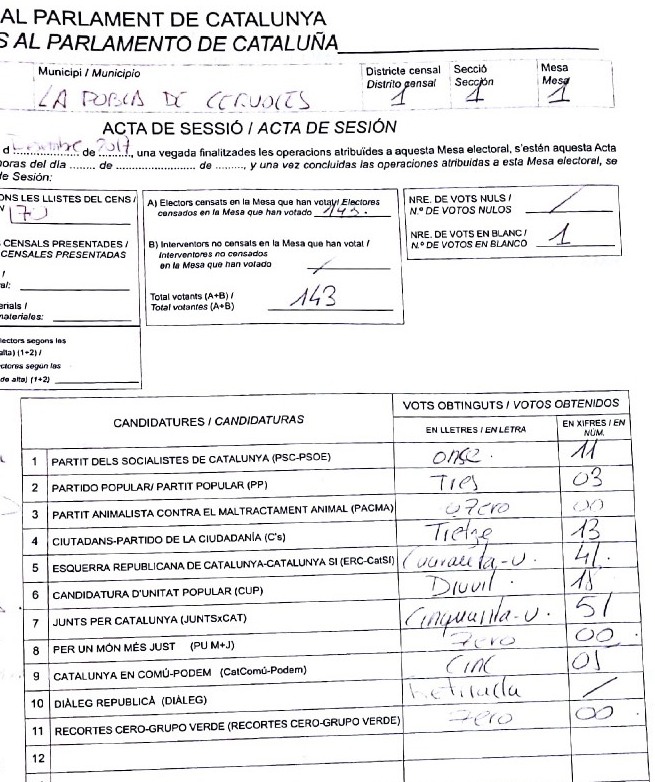 AL PARLAMENT DE CATALUNYA
S AL PARLAMENTO DE CATALUÑA
Municipi / Municipio
LA POBLA DE CERVOLES
Districte censal
Distrito censal
1
Secció
Sección
1
Mesa
Mesa
1
ACTA DE SESSIÓ / ACTA DE SESIÓN
d de 2017, una vegada finalitzades les operacions atribuïdes a aquesta Mesa electoral, s'estén aquesta Acta
horas del día ........ de .................... de ........, y una vez concluidas las operaciones atribuidas a esta Mesa electoral, se
de Sesión:
ONS LES LLISTES DEL CENS /
170
CENSALS PRESENTADES /
CENSALES PRESENTADAS
al:
erials /
materiales:
lectors segons les
alta) (1+2) /
ctores según las
de alta) (1+2)
A) Electors censats en la Mesa que han votat/ Electores
censados en la Mesa que han votado 143.
B) Interventors no censats en la Mesa que han votat /
Interventores no censados
en la Mesa que han votado /
Total votants (A+B) /
Total votantes (A+B) 143
NRE. DE VOTS NULS /
N.º DE VOTOS NULOS /
NRE. DE VOTS EN BLANC /
N.º DE VOTOS EN BLANCO 1
CANDIDATURES / CANDIDATURAS
VOTS OBTINGUTS / VOTOS OBTENIDOS
EN LLETRES / EN LETRA
EN XIFRES / EN
NÚM.
1 PARTIT DELS SOCIALISTES DE CATALUNYA (PSC-PSOE) onse. 11
2 PARTIDO POPULAR/ PARTIT POPULAR (PP) Tres 03
3 PARTIT ANIMALISTA CONTRA EL MALTRACTAMENT ANIMAL (PACMA) 00
4 CIUTADANS-PARTIDO DE LA CIUDADANÍA (C's) Tretze 13
5 ESQUERRA REPUBLICANA DE CATALUNYA-CATALUNYA SI (ERC-CatSI) Cuaranta-u. 41.
6 CANDIDATURA D'UNITAT POPULAR (CUP) Divuit. 18
7 JUNTS PER CATALUNYA (JUNTSxCAT) Cinquanta-u. 51
8 PER UN MÓN MÉS JUST (PU M+J) Zero 00
9 CATALUNYA EN COMÚ-PODEM (CatComú-Podem) Cinc 05
10 DIÀLEG REPUBLICÀ (DIÀLEG) Retirada /
11 RECORTES CERO-GRUPO VERDE (RECORTES CERO-GRUPO VERDE) Zero 00
12